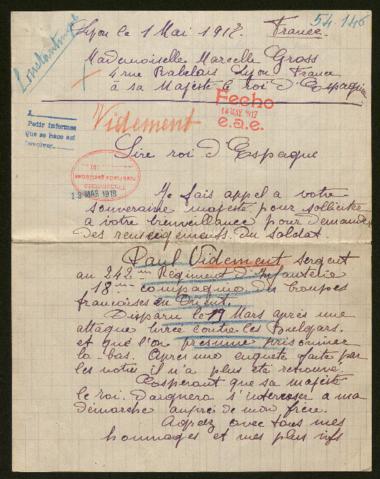 54.146
Lyon le 1 Mai 1917. France.
Mademoiselle Marcelle Gross
4 rue Rabelais Lyon France
à sa Majesté le roi d'Espagne
Fecho
14 MAY 1917
e.a.e.
Videment
A
Pedir informes
Que se haga así
13 MAR 1918
Sire roi d'Espagne
Je fais appel a votre
souveraine majesté pour solliciter
a votre bienveillance pour demander
des renseignements du soldat
Paul Videment sergent
au 242me Regiment d'Infanterie
18me compagnie des troupes
françaises en Orient.
Disparu le 19 Mars après une
attaque livrée contre les Boulgars.
et que l'on présume prisonnier
la bas. Après une enquête faite par
les notres il n'a plus été retrouvé.
Esperant que sa majesté
le roi. Daignera s'interesser a ma
démarche auprès de mon frère.
Agréez avec tous mes
hommages et mes plus vifs